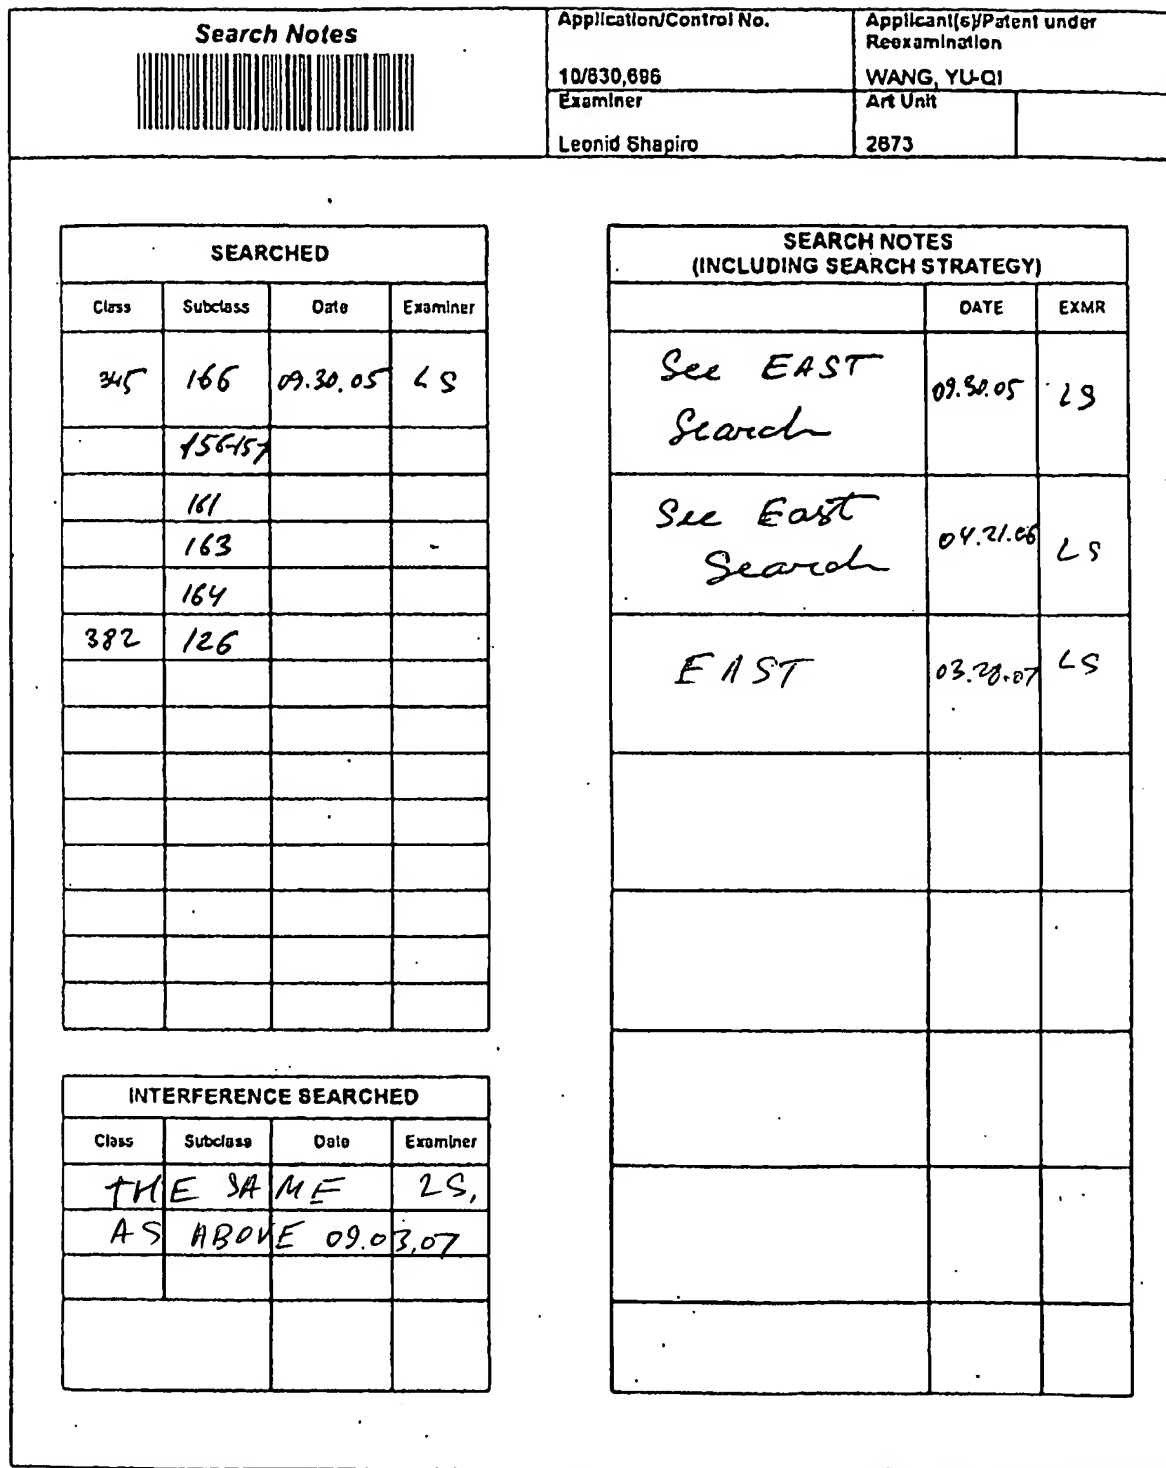 Search Notes
Application/Control No.
10/630,696
Applicant(s)/Patent under
Reexamination
WANG, YU-QI
Examiner
Leonid Shapiro
Art Unit
2673
SEARCHED
Class Subclass Date Examiner
345 166 09.30.05 LS
156-157
161
163
164
382 126
INTERFERENCE SEARCHED
Class Subclass Date Examiner
THE SAME LS,
AS ABOVE 09.03.07
SEARCH NOTES
(INCLUDING SEARCH STRATEGY)
DATE EXMR
See EAST
Search 09.30.05 LS
See East
Search 04.21.06 LS
EAST 03.28.07 LS